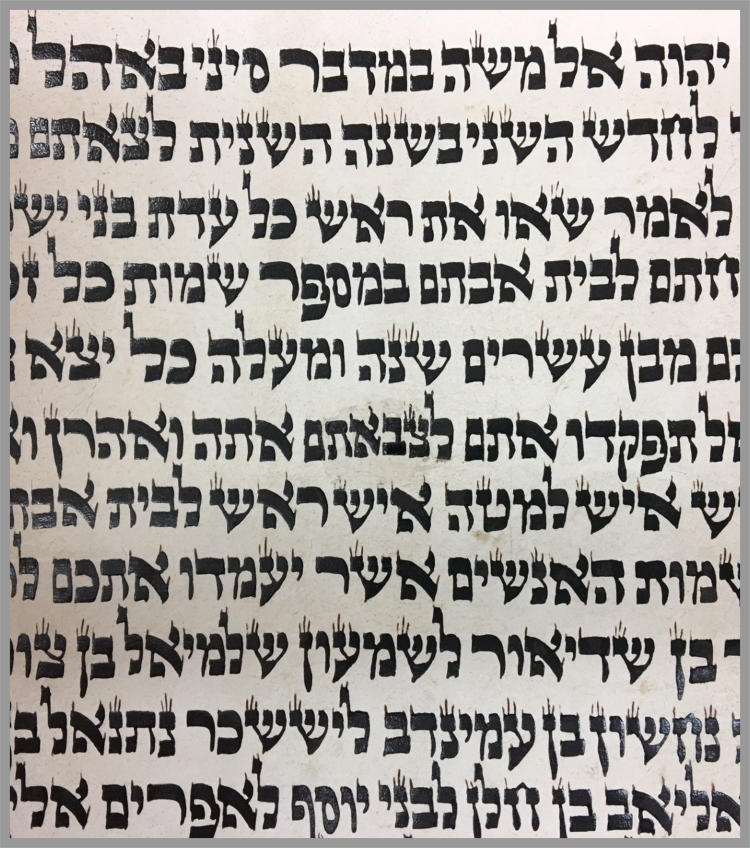 יהוה אל משה במדבר סיני באהל
לחדש השני בשנה השנית לצאתם
לאמר שאו את ראש כל עדת בני יש
חתם לבית אבתם במספר שמות כל
ם מבן עשרים שנה ומעלה כל יצא
ל תפקדו אתם לצבאתם אתה ואהרן
יש איש למטה איש ראש לבית אבת
שמות האנשים אשר יעמדו אתכם
בן שדיאור לשמעון שלמיאל בן צו
נחשון בן עמינדב ליששכר נתנאל ב
אליאב בן חלן לבני יוסף לאפרים אלי